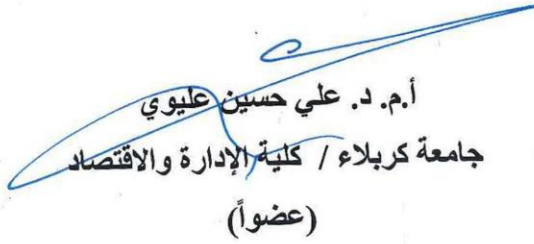 أ.م. د. علي حسين عليوي
جامعة كربلاء / كلية الإدارة والاقتصاد
(عضواً)